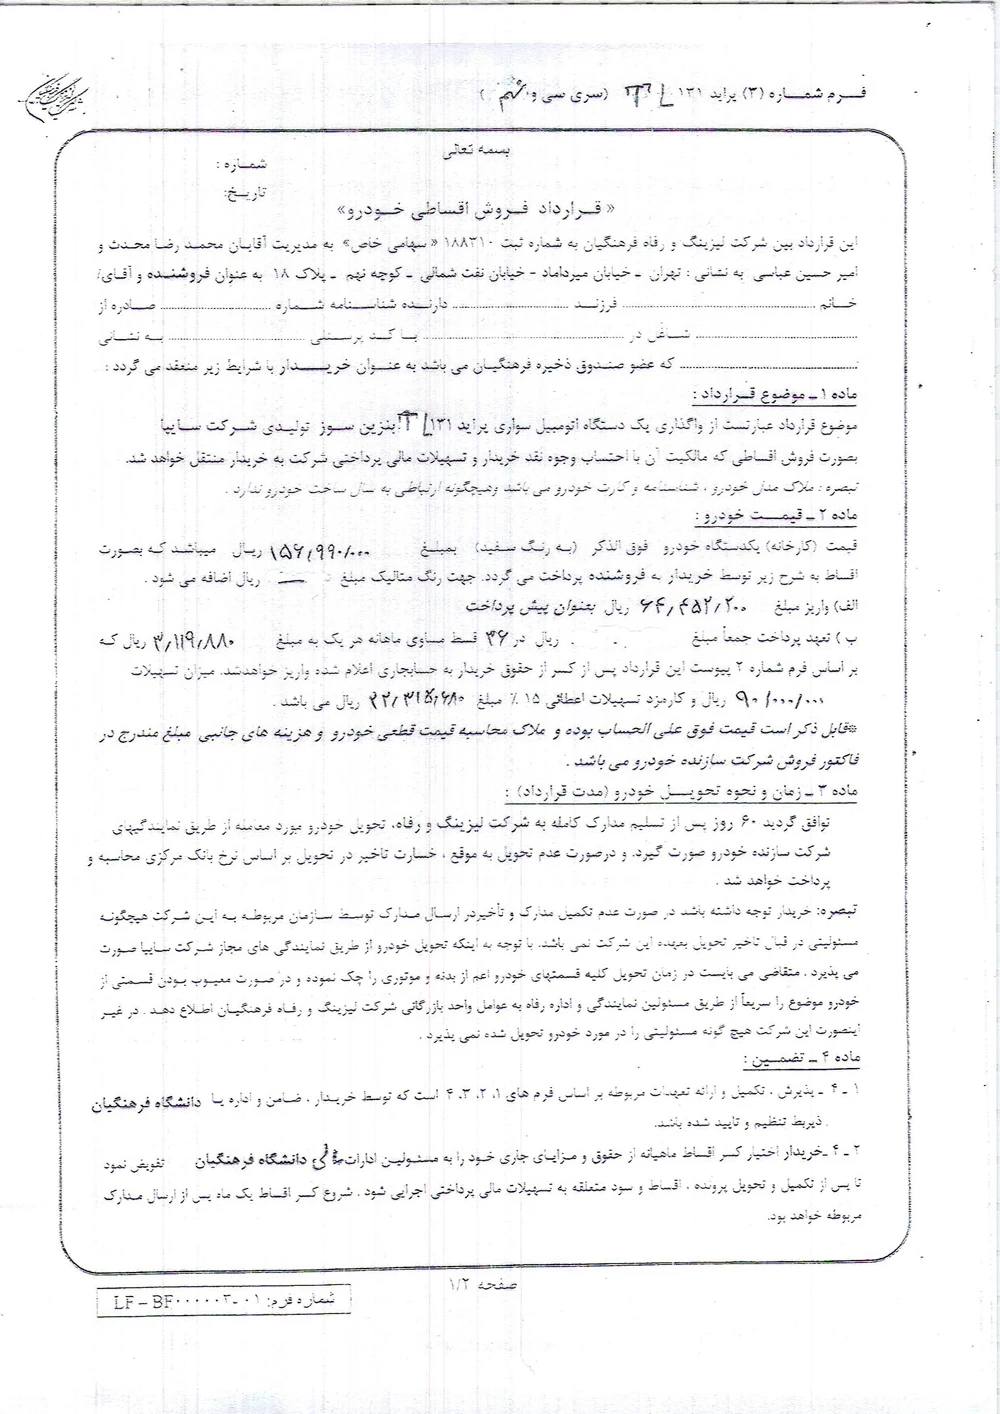 فـرم شمـاره (۳) پراید ۱۳۱ TL (سری سی و
بسمه تعالی
شمـاره :
تاریـخ:
« قـرارداد فـروش اقسـاطی خـودرو»
این قرارداد بین شرکت لیزینگ و رفاه فرهنگیان به شماره ثبت ۱۸۸۳۱۰ « سهامی خاص» به مدیریت آقایان محمد رضا محدث و
امیر حسین عباسی به نشانی : تهران ـ خیابان میرداماد - خیابان نفت شمالی ـ کوچه نهم ـ پلاک ۱۸ به عنوان فروشنده و آقای/
خـانم ........ فرزنـد ........ دارنـده شناسـنامه شمـاره ........ صـادره از
........ شـاغل در ........ بـا کـد پرسـنلی ........ بـه نشـانی
........ که عضو صندوق ذخیره فرهنگیـان می باشد به عنـوان خریـــدار با شرایط زیر منعقد می گردد :
ماده ۱ ـ موضوع قـرارداد :
موضوع قرارداد عبارتست از واگذاری یک دستگاه اتومبیل سواری پراید ۱۳۱ TL بنزین سوز تولیدی شرکت سـایپا
بصورت فروش اقساطی که مالکیت آن با احتساب وجوه نقد خریدار و تسهیلات مالی پرداختی شرکت به خریدار منتقل خواهد شد.
تبصره : ملاک مدل خودرو ، شناسنامه و کارت خودرو می باشد وهیچگونه ارتباطی به سال ساخت خودرو ندارد .
ماده ۲ ـ قیمـت خودرو :
قیمت (کارخانه) یکدستگاه خودرو فوق الذکر (بـه رنـگ سـفید) بمبلـغ ۱۵۶/۹۹۰/۰۰۰ ریـال میباشد کـه بصورت
اقساط به شرح زیر توسط خریدار به فروشنده پرداخت می گردد. جهت رنگ متالیک مبلغ ـــ ریال اضافه می شود .
الف) واریز مبلغ ۶۴/۴۵۲/۲۰۰ ریال بعنوان پیش پرداخت
ب ) تعهد پرداخت جمعاً مبلغ ریال در ۳۶ قسط مساوی ماهانه هر یک به مبلغ ۳/۱۱۹/۸۸۰ ریال کـه
بر اساس فرم شماره ۲ پیوست این قرارداد پس از کسر از حقوق خریدار به حسابجاری اعلام شده واریز خواهدشد. میزان تسهیلات
۹۰/۰۰۰/۰۰۰ ریال و کارمزد تسهیلات اعطائی ۱۵ ٪ مبلغ ۲۲/۳۱۵/۶۸۰ ریال می باشد .
*قابل ذکر است قیمت فوق علی الحساب بوده و ملاک محاسبه قیمت قطعی خودرو و هزینه های جانبی مبلغ مندرج در
فاکتور فروش شرکت سازنده خودرو می باشد .
ماده ۳ ـ زمان و نحوه تحویـل خودرو (مدت قرارداد) :
توافق گردید ۶۰ روز پس از تسلیم مدارک کامله به شرکت لیزینگ و رفاه، تحویل خودرو مورد معامله از طریق نمایندگیهای
شرکت سازنده خودرو صورت گیرد. و درصورت عدم تحویل به موقع ، خسارت تاخیر در تحویل بر اساس نرخ بانک مرکزی محاسبه و
پرداخت خواهد شد .
تبصره: خریدار توجه داشته باشد در صورت عدم تکمیل مدارک و تأخیردر ارسـال مـدارک توسـط سـازمان مربوطـه بـه ایـن شـرکت هیچگونـه
مسئولیتی در قبال تاخیر تحویل بعهده این شرکت نمی باشد. با توجه به اینکه تحویل خودرو از طریق نمایندگی های مجاز شـرکت سـایپا صـورت
می پذیرد . متقاضی می بایست در زمان تحویل کلیه قسمتهای خودرو اعم از بدنه و موتوری را چک نموده و در صورت معیوب بودن قسمتی از
خودرو موضوع را سریعاً از طریق مسئولین نمایندگی و اداره رفاه به عوامل واحد بازرگانی شرکت لیزینگ و رفـاه فرهنگیـان اطـلاع دهـد . در غیـر
اینصورت این شرکت هیچ گونه مسئولیتی را در مورد خودرو تحویل شده نمی پذیرد .
ماده ۴ ـ تضمـین :
۱ ـ ۴ ـ پذیرش ، تکمیل و ارائه تعهدات مربوطه بر اساس فرم های ۱، ۲، ۳، ۴ است که توسط خریـدار ، ضـامن و اداره یـا دانشگاه فرهنگیان
ذیربط تنظیم و تایید شده باشد.
۲ ـ ۴ ـ خریدار اختیار کسر اقساط ماهیانه از حقوق و مزایـای جاری خـود را به مسئولیـن ادارات دانشگاه فرهنگیان تفویض نمود
تا پس از تکمیل و تحویل پرونده ، اقساط و سود متعلقه به تسهیلات مالی پرداختی اجرایی شود . شروع کسر اقساط یک ماه پس از ارسال مـدارک
مربوطه خواهد بود.
صفحه ۱/۲
شماره فرم: LF – BF۰۰۰۰۰۲-۰۱